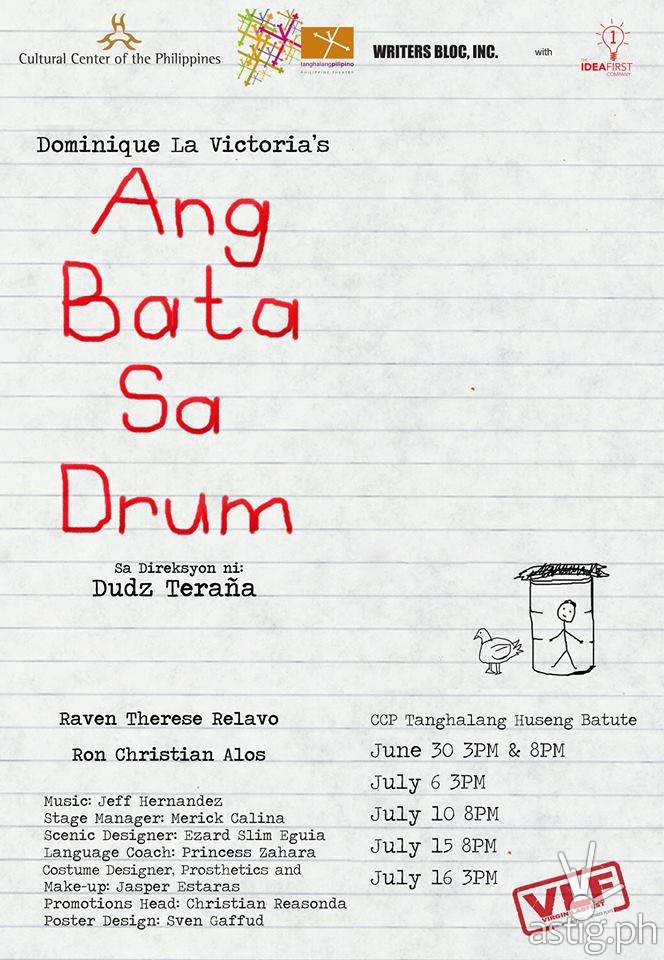 Cultural Center of the Philippines
tanghalangpilipino
PHILIPPINE THEATER
WRITERS BLOC, INC.
with
1
THE
IDEAFIRST
COMPANY
Dominique La Victoria's
Ang
Bata
Sa
Drum
Sa Direksyon ni:
Dudz Teraña
Raven Therese Relavo
Ron Christian Alos
Music: Jeff Hernandez
Stage Manager: Merick Calina
Scenic Designer: Ezard Slim Eguia
Language Coach: Princess Zahara
Costume Designer, Prosthetics and
Make-up: Jasper Estaras
Promotions Head: Christian Reasonda
Poster Design: Sven Gaffud
CCP Tanghalang Huseng Batute
June 30 3PM & 8PM
July 6 3PM
July 10 8PM
July 15 8PM
July 16 3PM
VLF
VIRGIN LABFEST
astig.ph